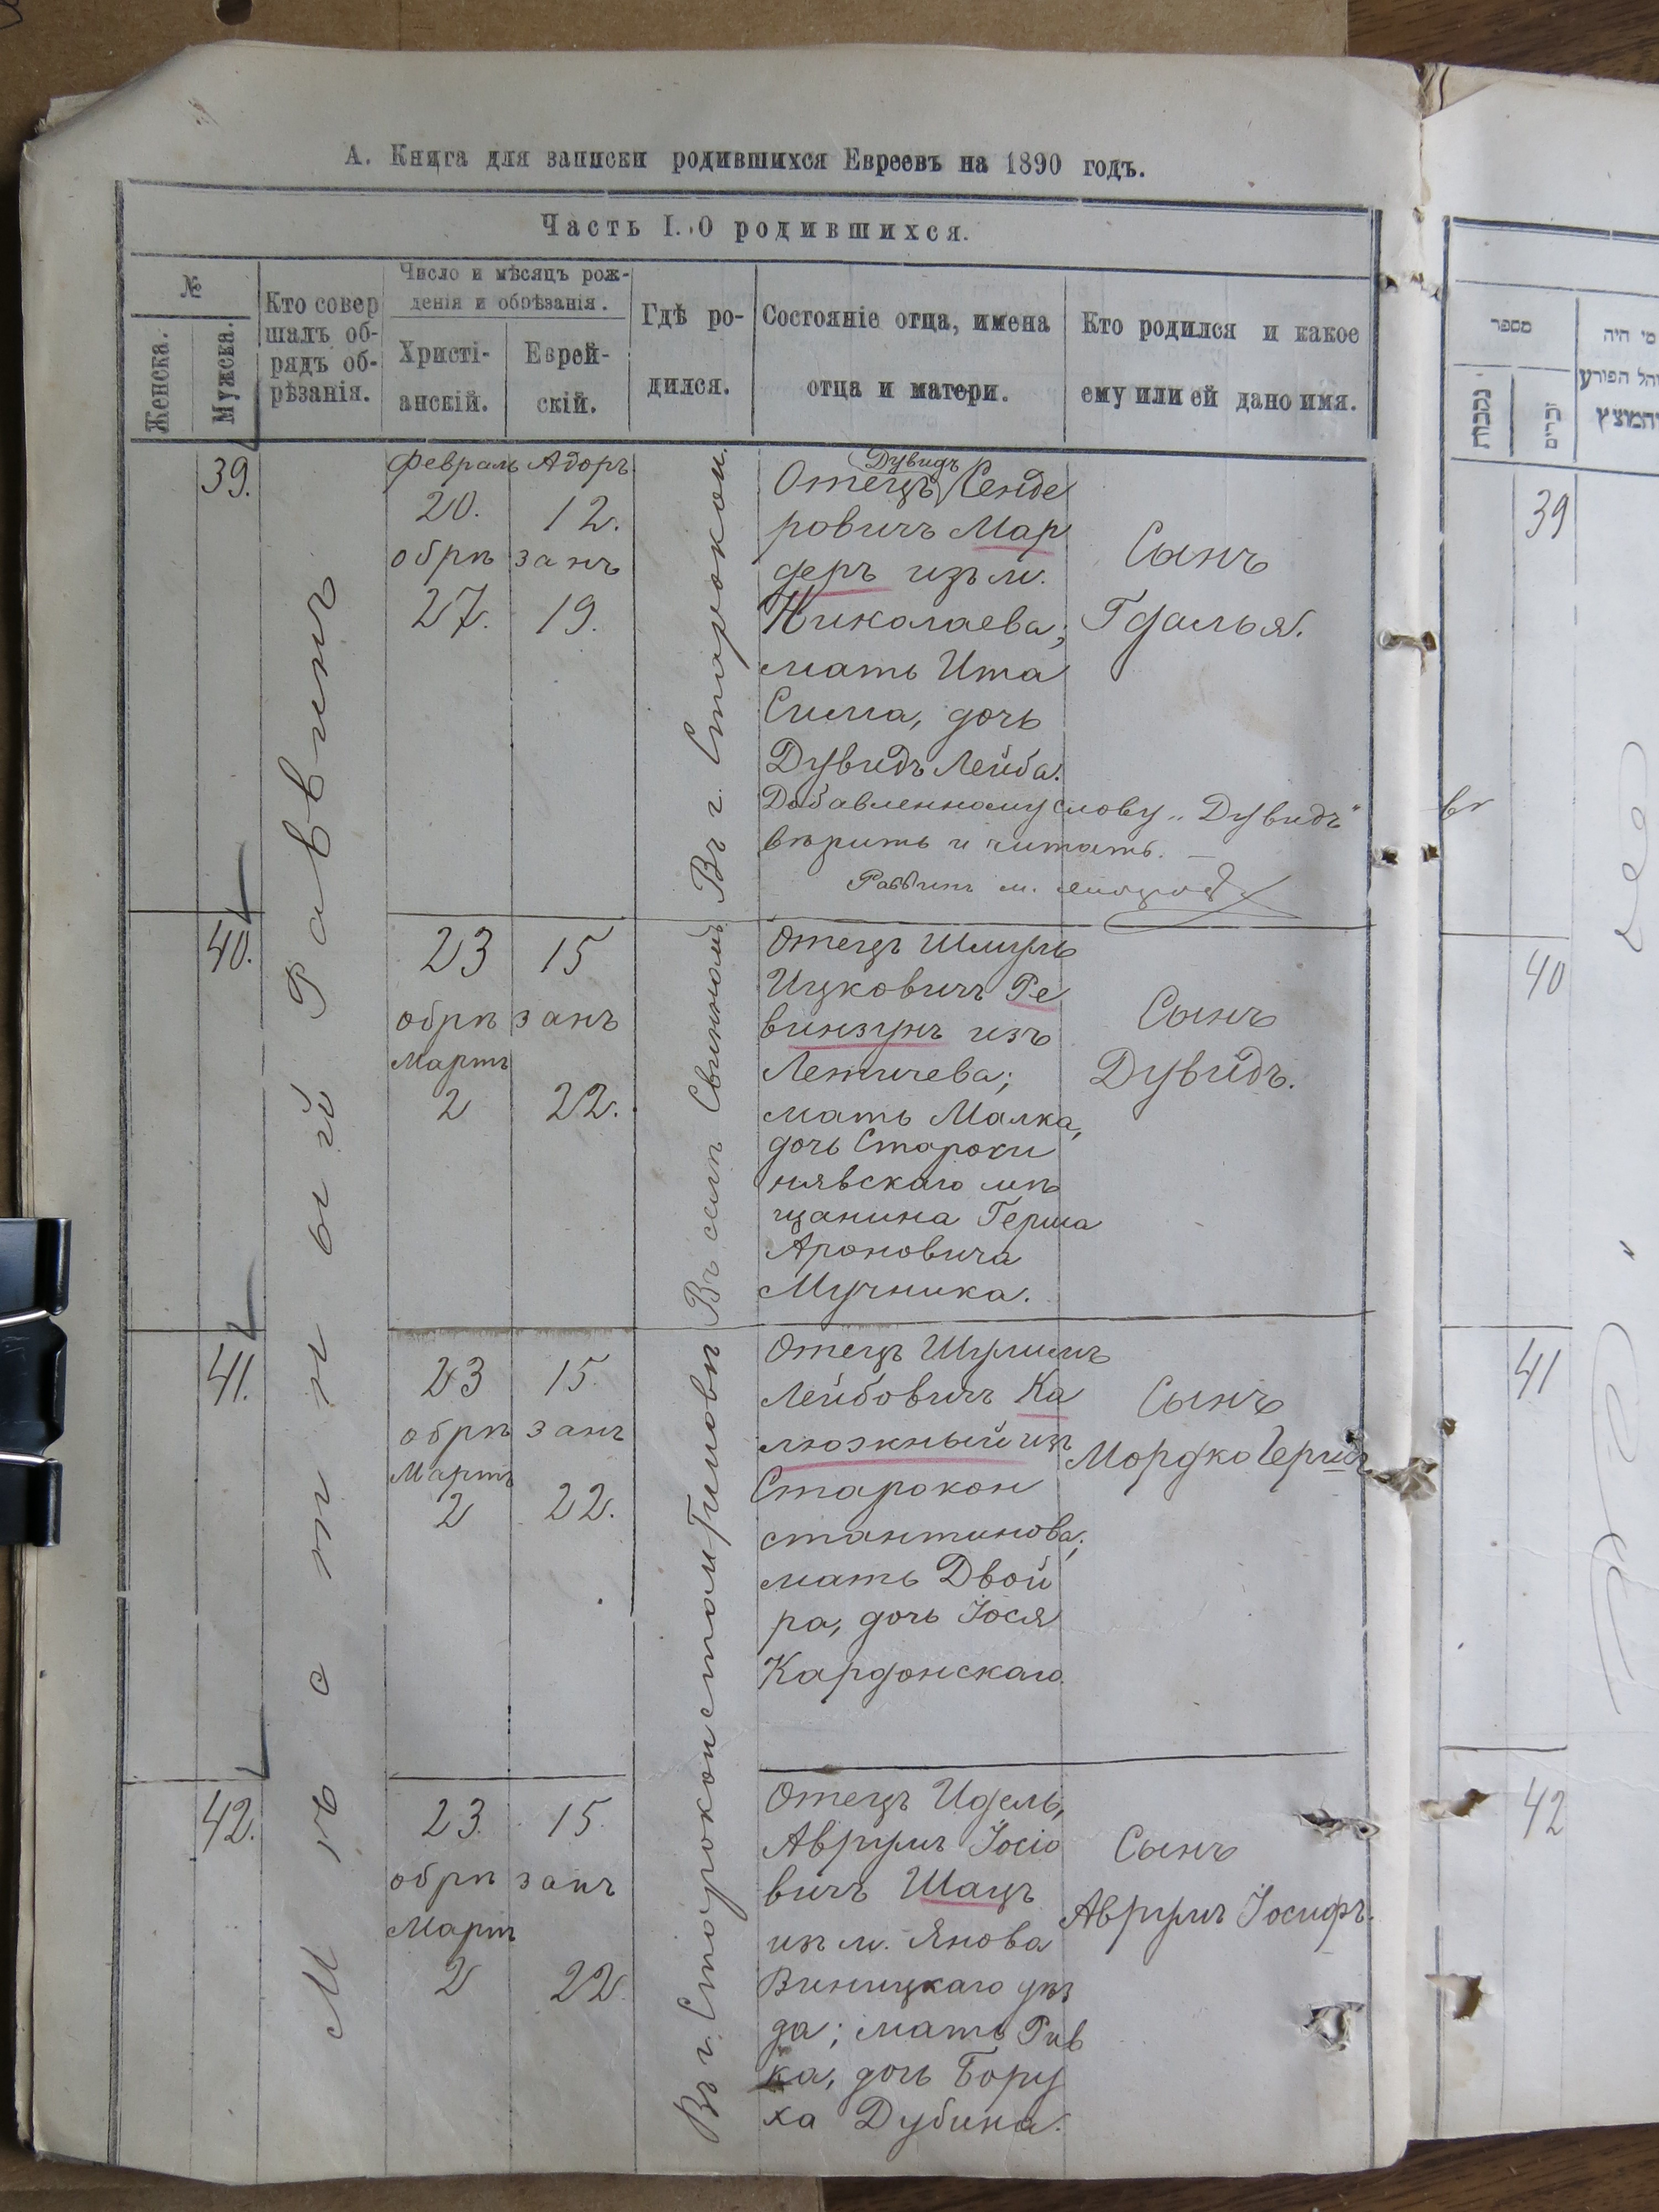 А. Книга для записки родившихся Евреевъ на 1890 годъ.
Часть I. О родившихся.
№
Женска.
Мужска.
Кто совер
шалъ об-
рядъ об-
рѣзанія.
Число и мѣсяцъ рож-
денія и обрѣзанія.
Христі-
анскій.
Еврей-
скій.
Гдѣ ро-
дился.
Состояніе отца, имена
отца и матери.
Кто родился и какое
ему или ей дано имя.
Мѣстный Раввинъ
39.
Февраль Адоръ
20. 12.
обрѣзанъ
27. 19.
Въ г. Старокон.
Дувидъ
Отецъ Сенде
ровичъ Мар
деръ изъ м.
Николаева;
мать Ита
Сима, дочь
Дувидъ Лейба.
Сынъ
Гдалья.
Добавленному слову „Дувидъ“
вѣрить и читать. —
Раввинъ м.
40.
23 15
обрѣзанъ
Мартъ
2 22.
Въ селѣ Свинной
Отецъ Шмуль
Ицковичъ Ре
винзунъ изъ
Летичева;
мать Малка,
дочь Староси
нявскаго мѣ
щанина Герша
Ароновича
Мучника.
Сынъ
Дувидъ.
41.
23 15.
обрѣзанъ
Мартъ
2 22.
Въ г. Староконстантиновѣ
Отецъ Шулимъ
Лейбовичъ Ка
люжный изъ
Старокон
стантинова;
мать Двой
ра, дочь Іося
Кардонскаго.
Сынъ
Мордко Гершъ
42.
23. 15.
обрѣзанъ
Мартъ
2 22.
Отецъ Идель,
Аврумъ Іосіо
вичъ Шацъ
изъ м. Янова
Виницкаго уѣз
да; мать Рив
ка, дочь Бору
ха Дубина.
Сынъ
Аврумъ Іосифъ.
מספר
נקבות
זכרים
מי היה
והל הפורע
והמוצץ
39
40
41
42